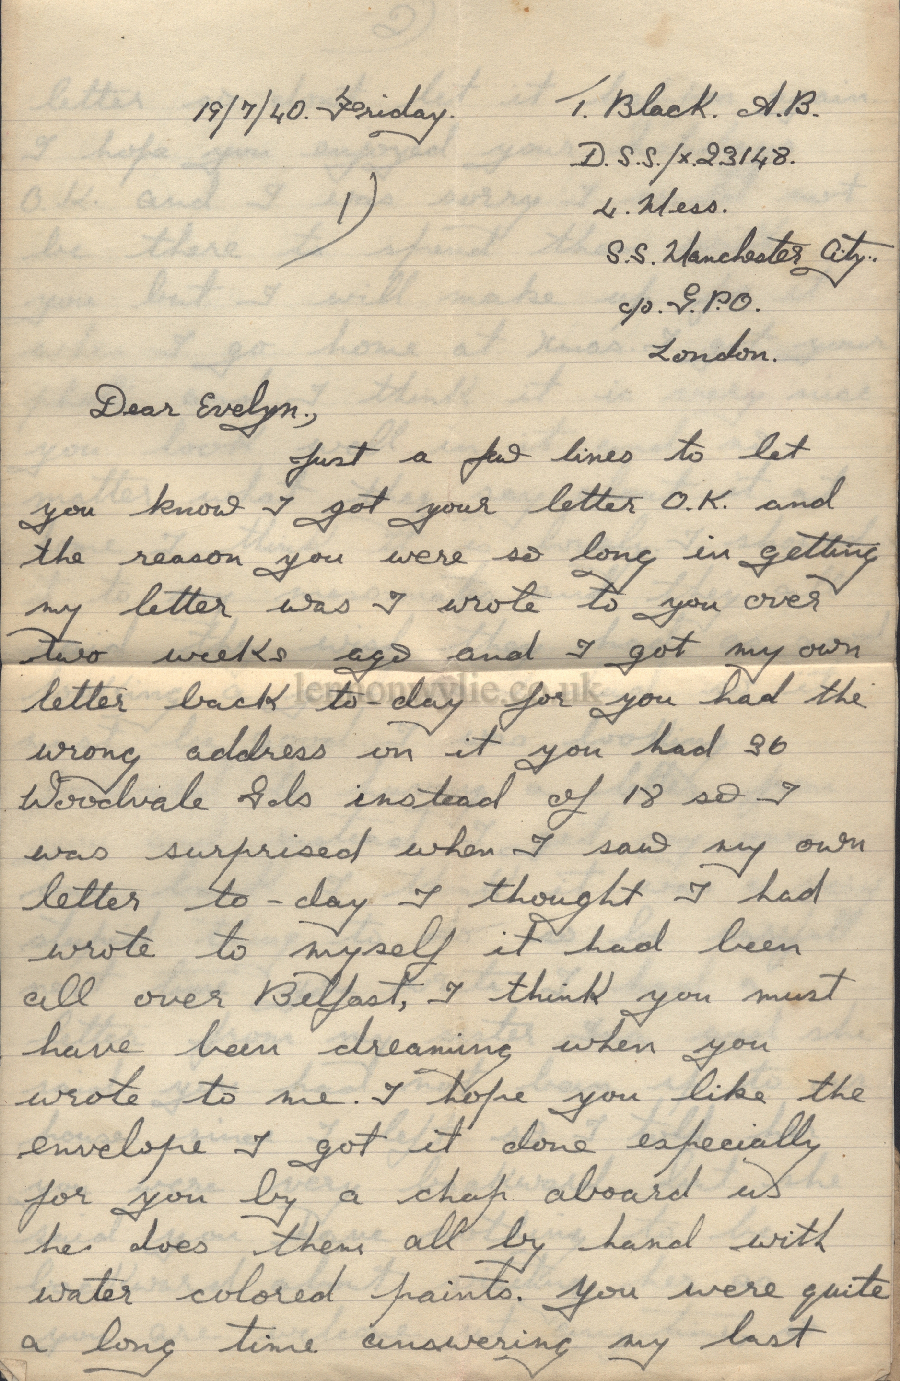 19/7/40. Friday.
T. Black. A.B.
D.S.S./x.23148.
1)
4. Mess.
S.S. Manchester City.
c/o. G.P.O.
London.
Dear Evelyn.,
Just a few lines to let
you know I got your letter O.K. and
the reason you were so long in getting
my letter was I wrote to you over
two weeks ago and I got my own
letter back to-day for you had the
wrong address on it you had 36
Woodvale Gds instead of 18 so I
was surprised when I saw my own
letter to-day I thought I had
wrote to myself it had been
all over Belfast, I think you must
have been dreaming when you
wrote to me. I hope you like the
envelope I got it done especially
for you by a chap aboard us
he does them all by hand with
water colored paints. You were quite
a long time answering my last
lennonwylie.co.uk